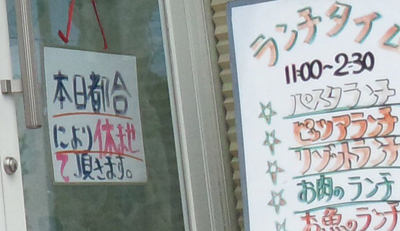 本日都合
により休ませ
て頂きます。
ランチタイム
11:00~2:30
☆パスタランチ
☆ピッツアランチ
☆リゾットランチ
☆お肉のランチ
☆お魚のランチ